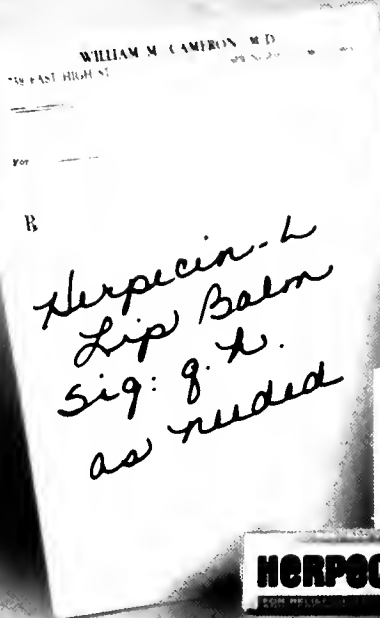 WILLIAM M. CAMERON, M.D.
EAST HIGH ST
For
R
Herpecin-L
Lip Balm
Sig: q.h.
as needed
HERPEC
FOR RELIEF